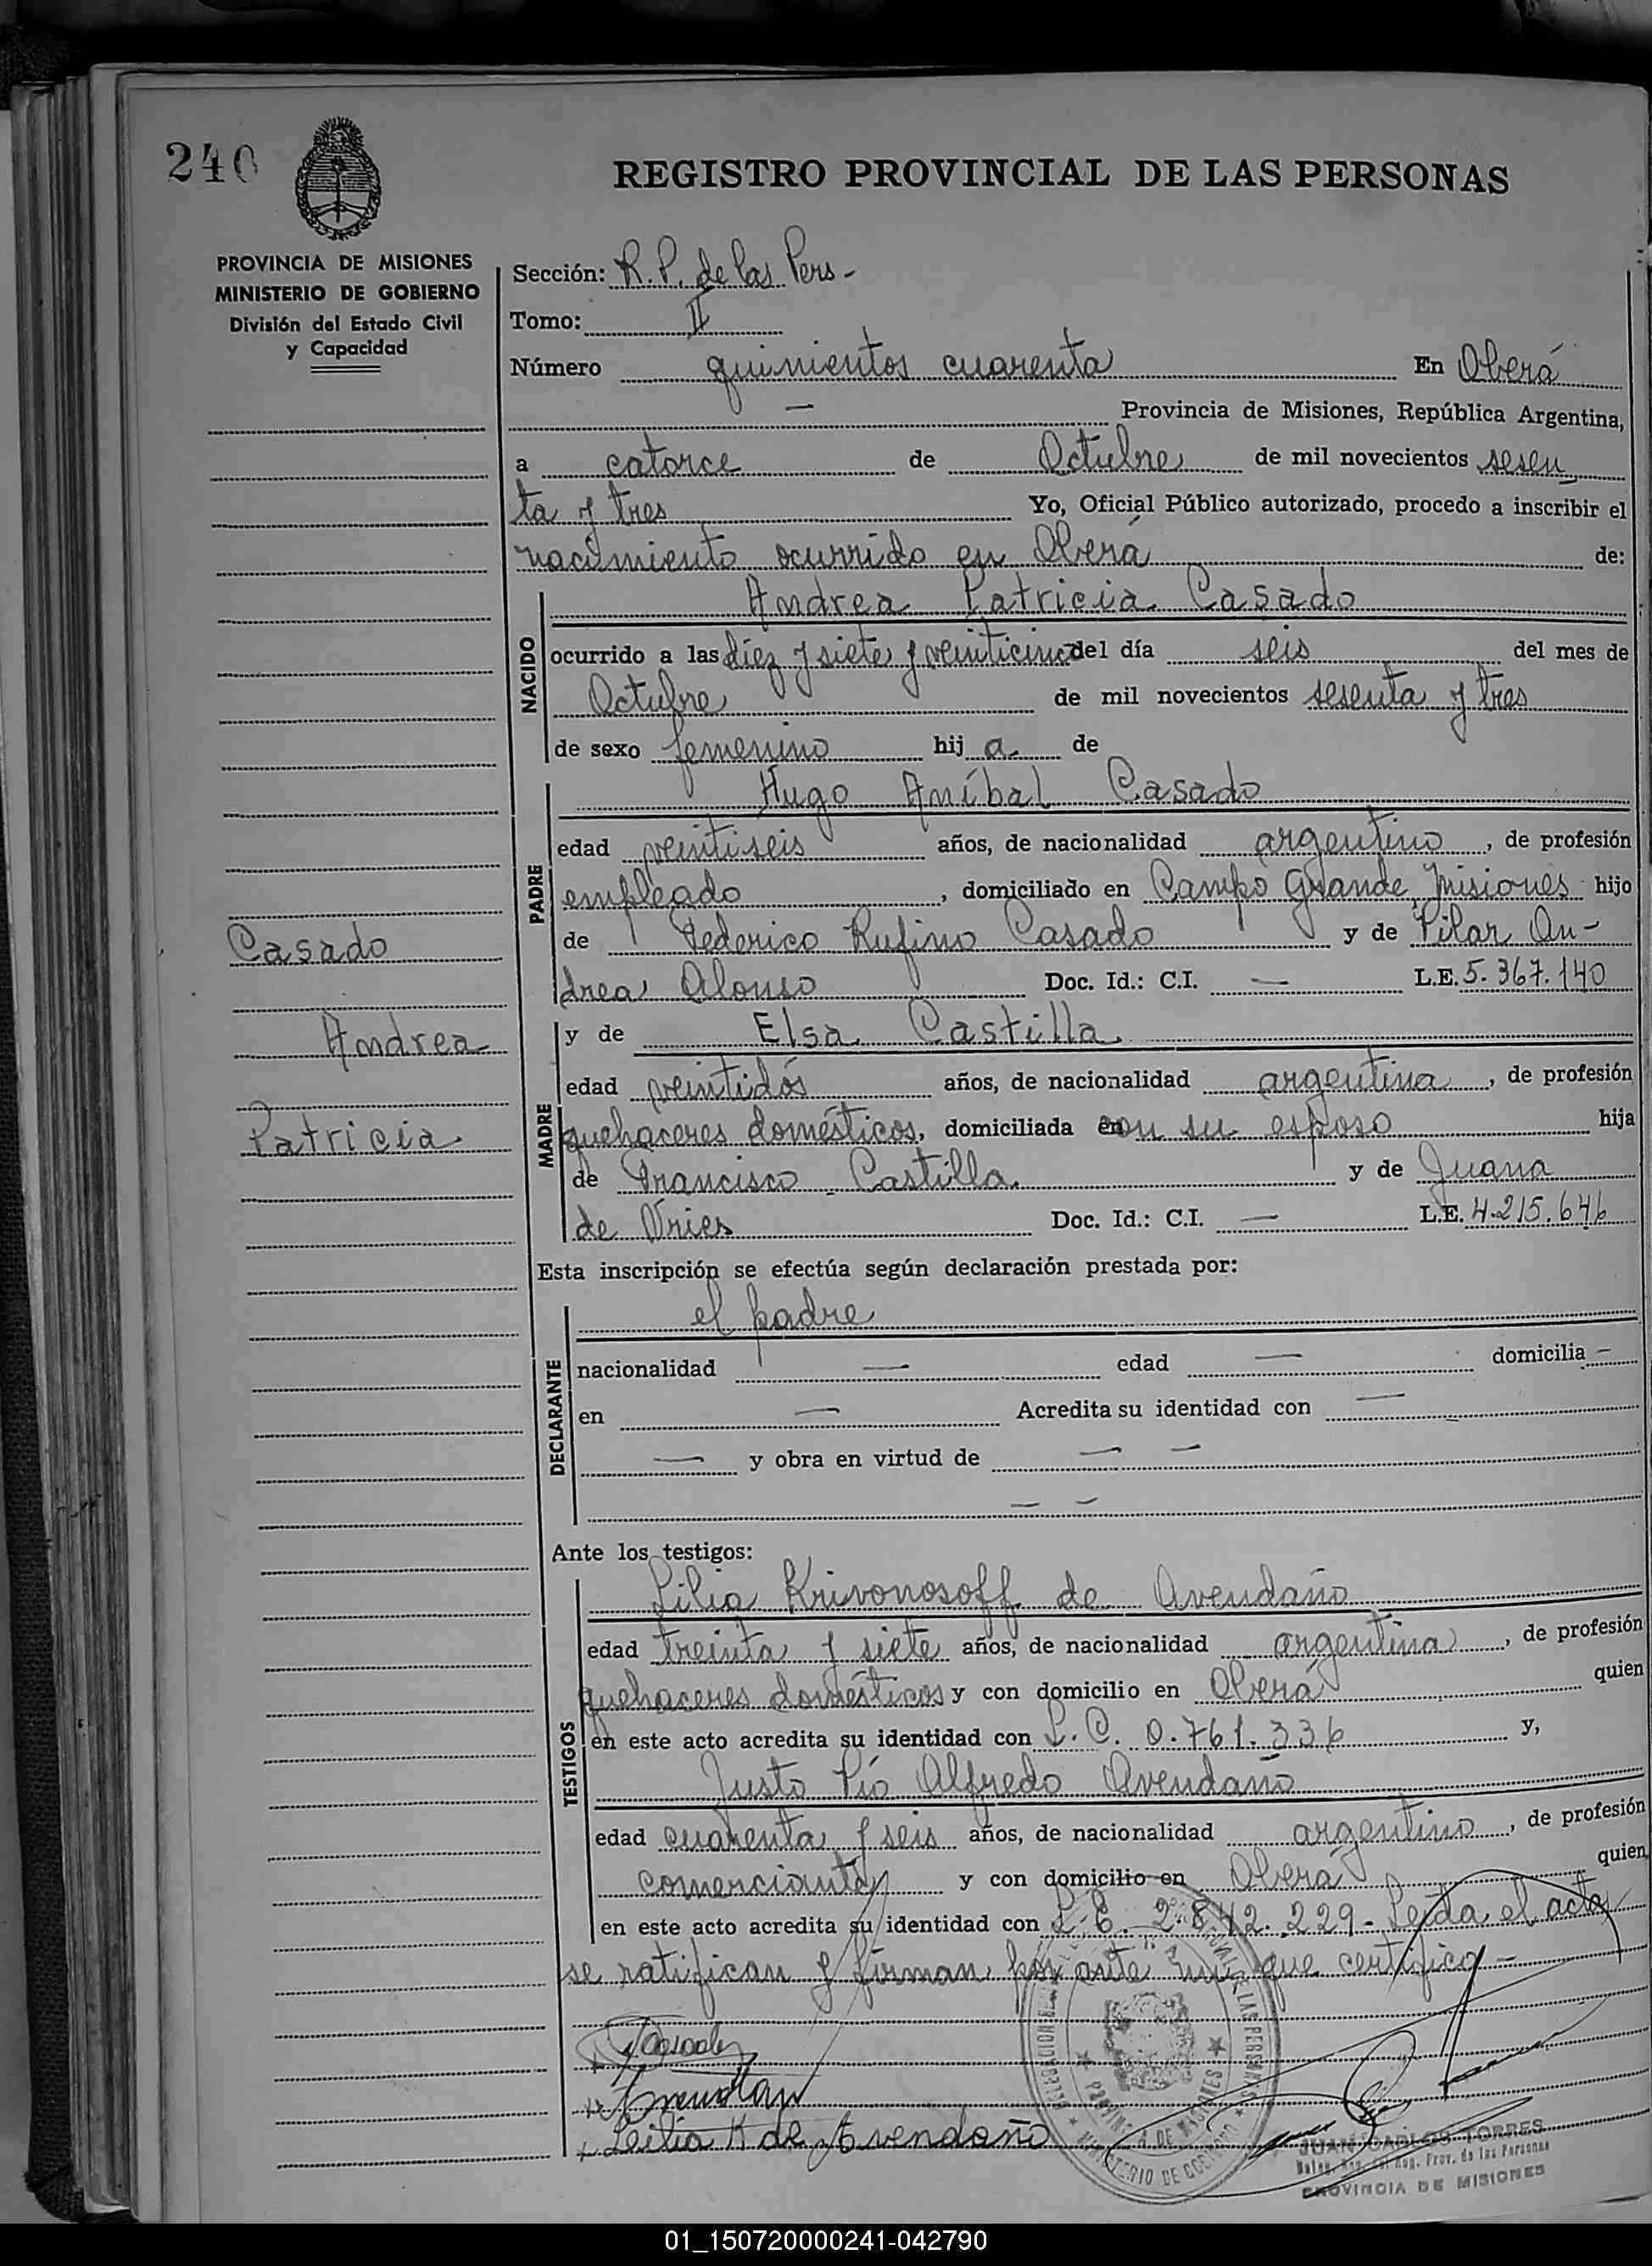 240
REGISTRO PROVINCIAL DE LAS PERSONAS
PROVINCIA DE MISIONES
MINISTERIO DE GOBIERNO
División del Estado Civil
y Capacidad
Sección: R.P. de las Pers -
Tomo: II
Número quinientos cuarenta En Oberá
— Provincia de Misiones, República Argentina,
a catorce de Octubre de mil novecientos sesen
ta y tres Yo, Oficial Público autorizado, procedo a inscribir el
nacimiento ocurrido en Oberá de:
NACIDO
Andrea Patricia Casado
ocurrido a las diez y siete y veinticinco del día seis del mes de
Octubre de mil novecientos sesenta y tres
de sexo femenino hij a de
PADRE
Hugo Aníbal Casado
edad veintiseis años, de nacionalidad argentino, de profesión
empleado, domiciliado en Campo Grande, Misiones hijo
de Federico Rufino Casado y de Pilar An-
drea Alonso Doc. Id.: C.I. — L.E. 5.367.140
Casado
Andrea
Patricia
MADRE
y de Elsa Castilla
edad veintidós años, de nacionalidad argentina, de profesión
quehaceres domésticos, domiciliada en con su esposo hija
de Francisco Castilla y de Juana
de Vries Doc. Id.: C.I. — L.E. 4.215.646
Esta inscripción se efectúa según declaración prestada por:
DECLARANTE
el padre
nacionalidad — edad — domicilia —
en — Acredita su identidad con —
— y obra en virtud de — —
— —
Ante los testigos:
TESTIGOS
Lilia Krivonosoff de Avendaño
edad treinta y siete años, de nacionalidad argentina, de profesión
quehaceres domésticos y con domicilio en Oberá quien
en este acto acredita su identidad con L.C. 0.761.336 y,
Justo Pío Alfredo Avendaño
edad cuarenta y seis años, de nacionalidad argentino, de profesión
comerciante y con domicilio en Oberá quien
en este acto acredita su identidad con L.E. 2.842.229- Leída el acta
se ratifican y firman por ante mí que certifico -
Lilia K de Avendaño
PROVINCIA DE MISIONES
MINISTERIO DE GOBIERNO
JUAN CARLOS TORRES
Prov. de las Personas
PROVINCIA DE MISIONES
01_150720000241-042790